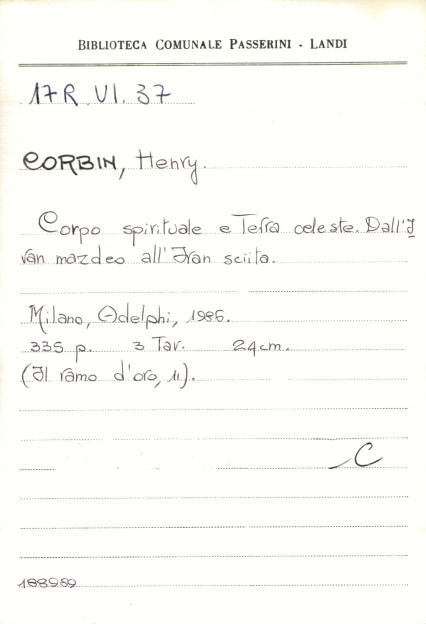 BIBLIOTECA COMUNALE PASSERINI - LANDI
17R VI. 37
CORBIN, Henry.
Corpo spirituale e Terra celeste. Dall'I
ran mazdeo all'Iran sciita.
Milano, Adelphi, 1986.
335 p. 3 Tav. 24 cm.
(Il ramo d'oro, 11).
C
188959